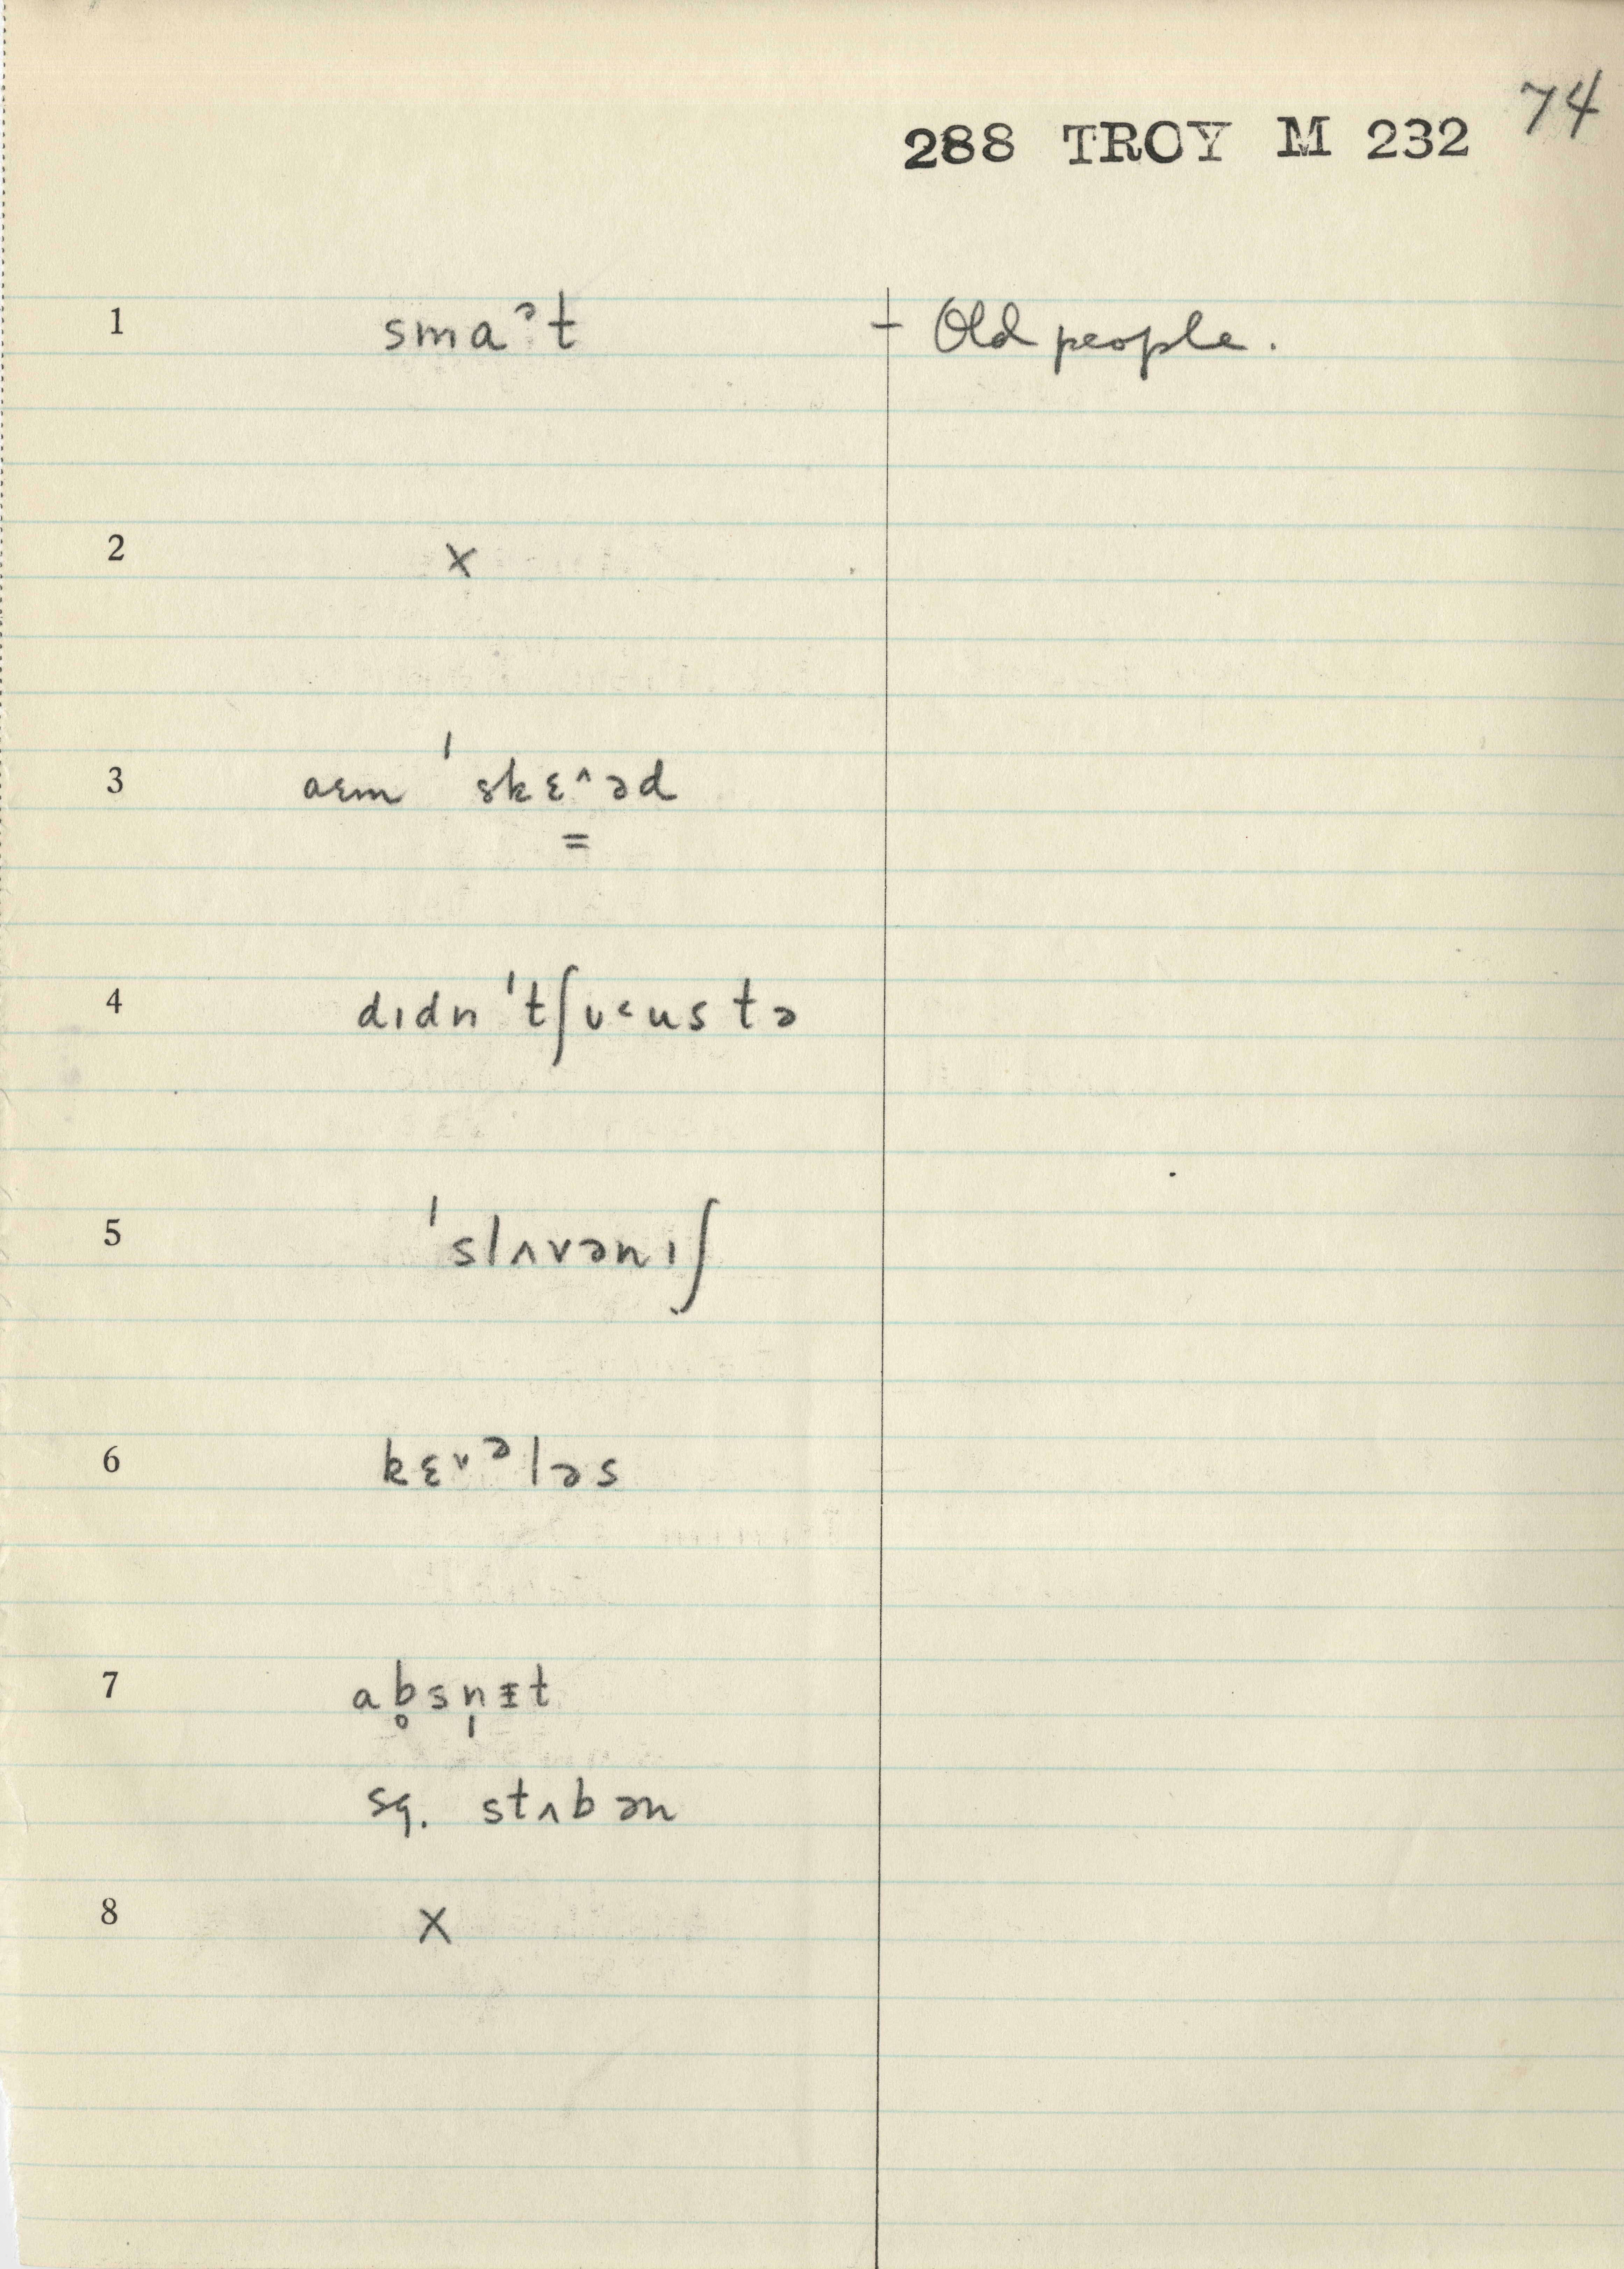 74
288 TROY M 232
1 smaᵊt † Old people.
2 ×
3 aɛm ˈskɛ^əd
=
4 dɩdn ˈtʃʊ˂us tə
5 ˈslʌvənɩʃ
6 kɛᵛᵊləs
7 ab̥sn̩ɪt
sq. stʌbən
8 ×